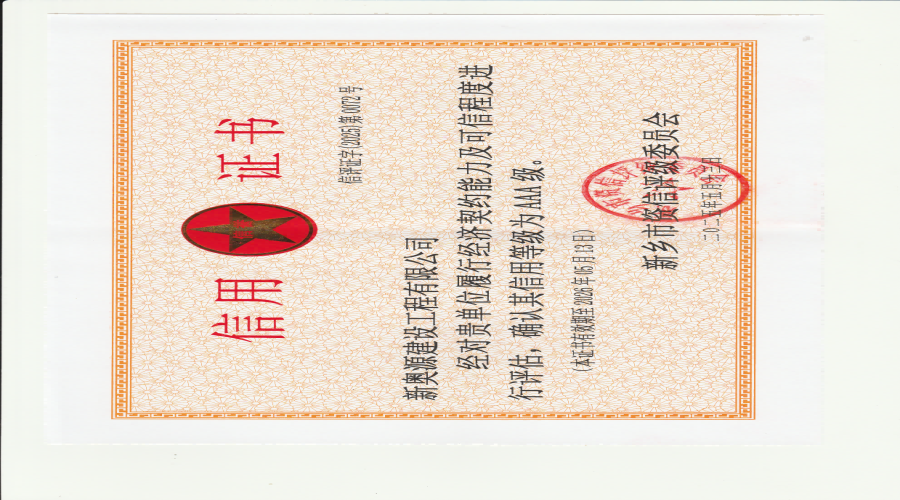 信用 证书
信评证字(2025)第0072号
新奥源建设工程有限公司
经对贵单位履行经济契约能力及可信程度进
行评估，确认其信用等级为AAA级。
（本证书有效期至2026年05月13日）
新乡市资信评级委员会
二〇二五年五月十三日